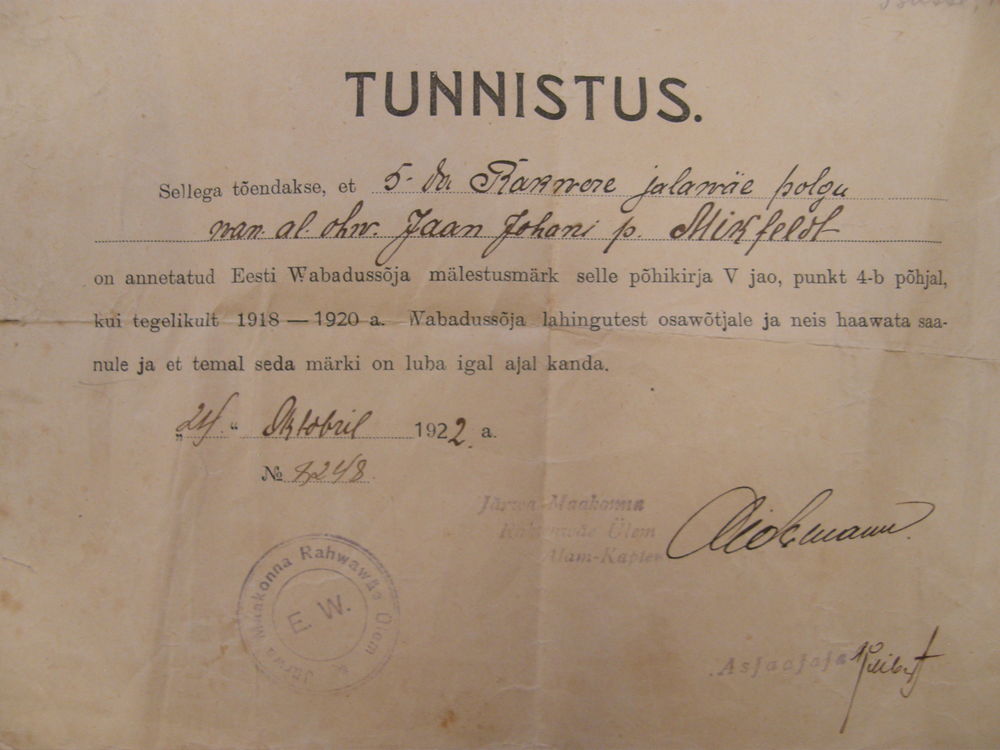 TUNNISTUS.
Sellega tõendakse, et 5-da Rakwere jalawäe polgu
wan. al. ohw. Jaan Johani p. Mikfeldt
on annetatud Eesti Wabadussõja mälestusmärk selle põhikirja V jao, punkt 4-b põhjal,
kui tegelikult 1918 — 1920 a. Wabadussõja lahingutest osawõtjale ja neis haawata saa-
nule ja et temal seda märki on luba igal ajal kanda.
„24“ Oktobril 1922. a.
№ 4248
Järwa Maakonna
Rahwawäe Ülem
Alam-Kapten
Järwa Maakonna Rahwawäe Ülem
E. W.
Asjaajaja